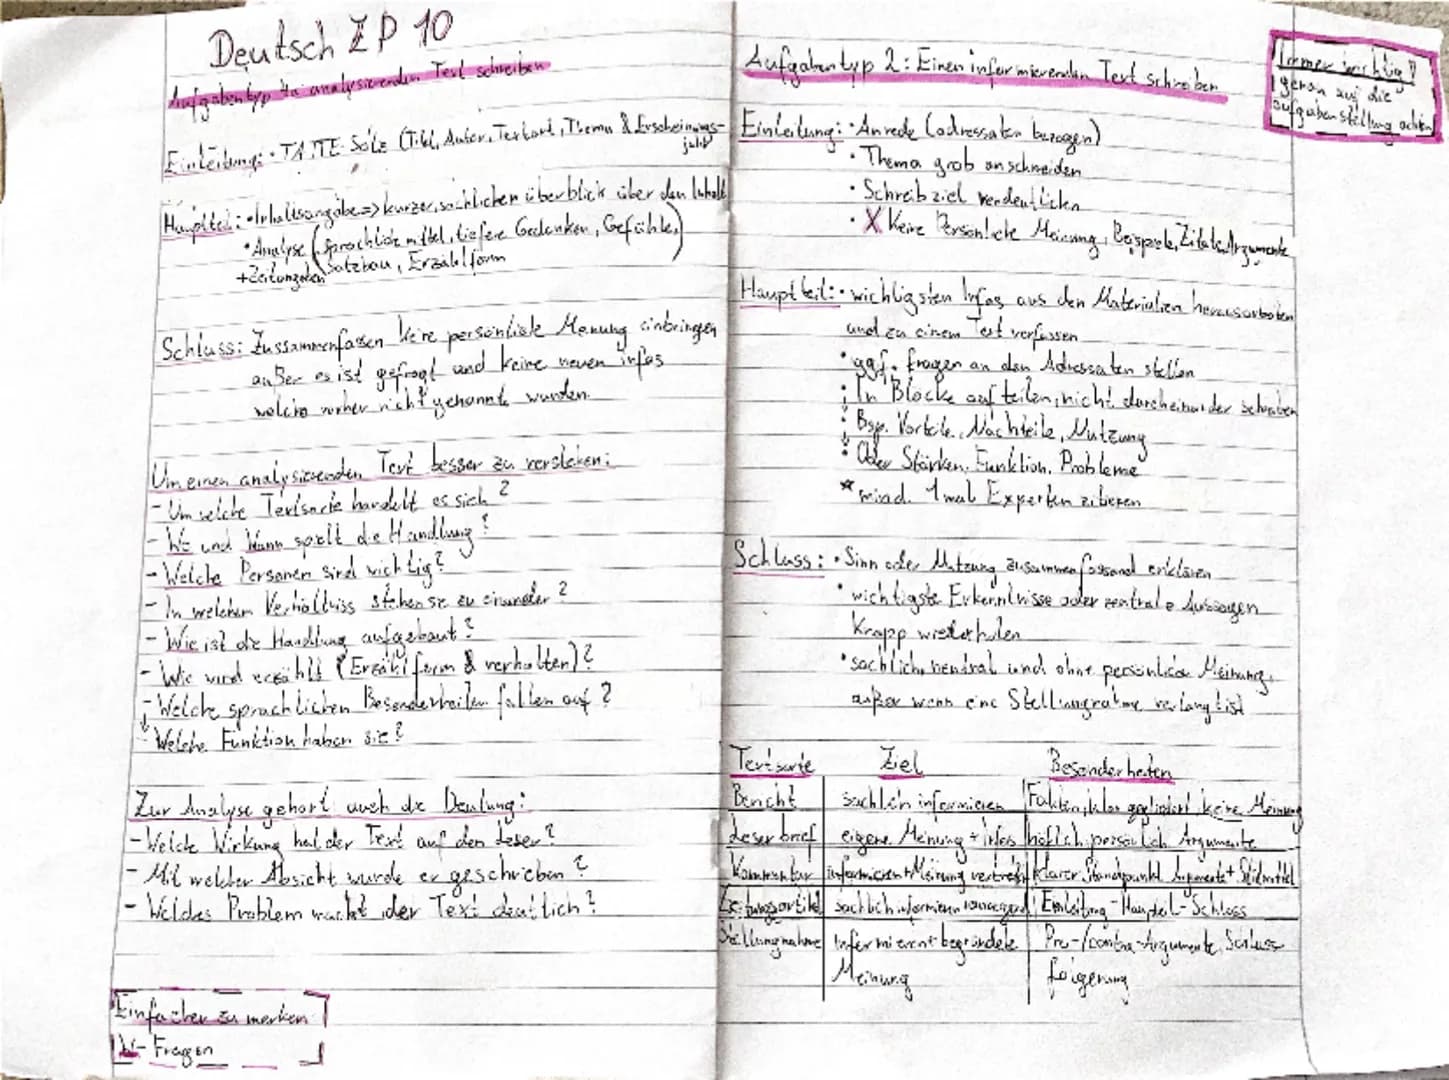 Deutsch ZP 10
Aufgabentyp 4a analysierenden Text schreiben
Einleitung: • TATTE-Satz (Titel, Autor, Textart, Thema & Erscheinungs-
jahr)
Hauptteil: • Inhaltsangabe => kurzer, sachlicher überblick über den Inhalt
• Analyse (sprachliche mittel, tiefere Gedanken, Gefühle,
Satzbau, Erzählform)
+ Zeilangaben
Schluss: Zussammenfassen keine persönliche Meinung einbringen
außer es ist gefragt und keine neuen infos
welche vorher nicht genannt wurden.
Um einen analysierenden Text besser zu verstehen:
- Um welche Textsorte handelt es sich?
- Wo und Wann spielt die Handlung?
- Welche Personen sind wichtig?
- In welchem Verhältniss stehen sie zu einander?
- Wie ist die Handlung aufgebaut?
- Wie wird erzählt (Erzählform & verhalten)?
- Welche sprachlichen Besonderheiten fallen auf?
↓ Welche Funktion haben sie?
Zur Analyse gehört auch die Deutung:
- Welche Wirkung hat der Text auf den Leser?
- Mit welcher Absicht wurde er geschrieben?
- Welches Problem macht der Text deutlich?
Einfacher zu merken
W-Fragen
Aufgabentyp 2: Einen informierenden Text schreiben
Immer wichtig!
genau auf die
aufgabenstellung achten
Einleitung: • Anrede (adressaten bezogen)
• Thema grob anschneiden
• Schreibziel verdeutlichen
• X Keine Persönliche Meinung, Beispiele, Zitate, Argumente
Hauptteil: • wichtigsten Infos aus den Materialien herausarbeiten
und zu einem Text verfassen
• ggf. fragen an den Adressaten stellen
• In Blöcke aufteilen, nicht durcheinander schreiben
• Bsp. Vorteile, Nachteile, Nutzung
• Oder Stärken, Funktion, Probleme
* mind. 1 mal Experten zitieren
Schluss: • Sinn oder Nutzung zusammenfassend erklären
• wichtigste Erkenntnisse oder zentrale Aussagen
Knapp wiederholen
• sachlich, neutral und ohne persönliche Meinung,
außer wenn eine Stellungnahme verlangt ist
Textsorte Ziel Besonderheiten
Bericht sachlich informieren Fakten, klar gegliedert, keine Meinung
Leserbrief eigene Meinung + infos höflich, persönlich, Argumente
Kommentar informieren + Meinung vertreten klarer Standpunkt, Argumente + Stilmittel
Zeitungsartikel sachlich informieren Einleitung - Hauptteil - Schluss
Stellungnahme Informieren + begründete Pro-/contra-Argumente, Schluss
Meinung folgerung